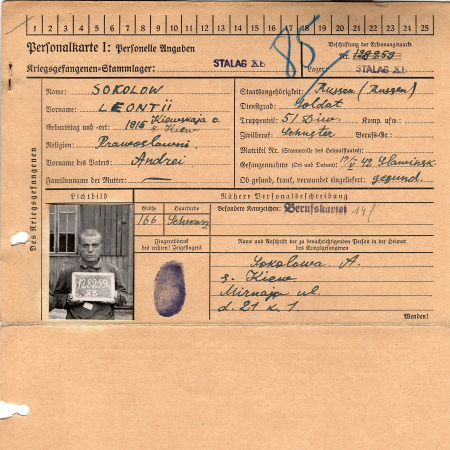 1 2 3 4 5 6 7 8 9 10 11 12 13 14 15 16 17 18 19 20 21 22 23 24 25
Personalkarte I: Personelle Angaben
Kriegsgefangenen-Stammlager: STALAG XB
85
Beschriftung der Erkennungsmarke
Nr. 128259
Lager: STALAG XB
Des Kriegsgefangenen
Name: SOKOLOW
Vorname: LEONTII
Geburtstag und -ort: 1916 Kiewskaja o. g. Kiew
Religion: Prawoslawni
Vorname des Vaters: Andrei
Familienname der Mutter:
Staatsangehörigkeit: Russen (Russen)
Dienstgrad: Soldat
Truppenteil: 51 Diw. Komp. usw.:
Zivilberuf: Schuster Berufs-Gr.:
Matrikel Nr. (Stammrolle des Heimatstaates):
Gefangennahme (Ort und Datum): 42 Slawinsk
Ob gesund, krank, verwundet eingeliefert: gesund.
Lichtbild
Nähere Personalbeschreibung
Größe
Haarfarbe
166
Schwarz
Besondere Kennzeichen: Berufskartei
Fingerabdruck
des rechten! Zeigefinger!
128259
XB
Name und Anschrift der zu benachrichtigenden Person in der Heimat
des Kriegsgefangenen
Sokolowa A.
g. Kiew
Mirnaja ul.
d. 21 k. 1.
Wenden!